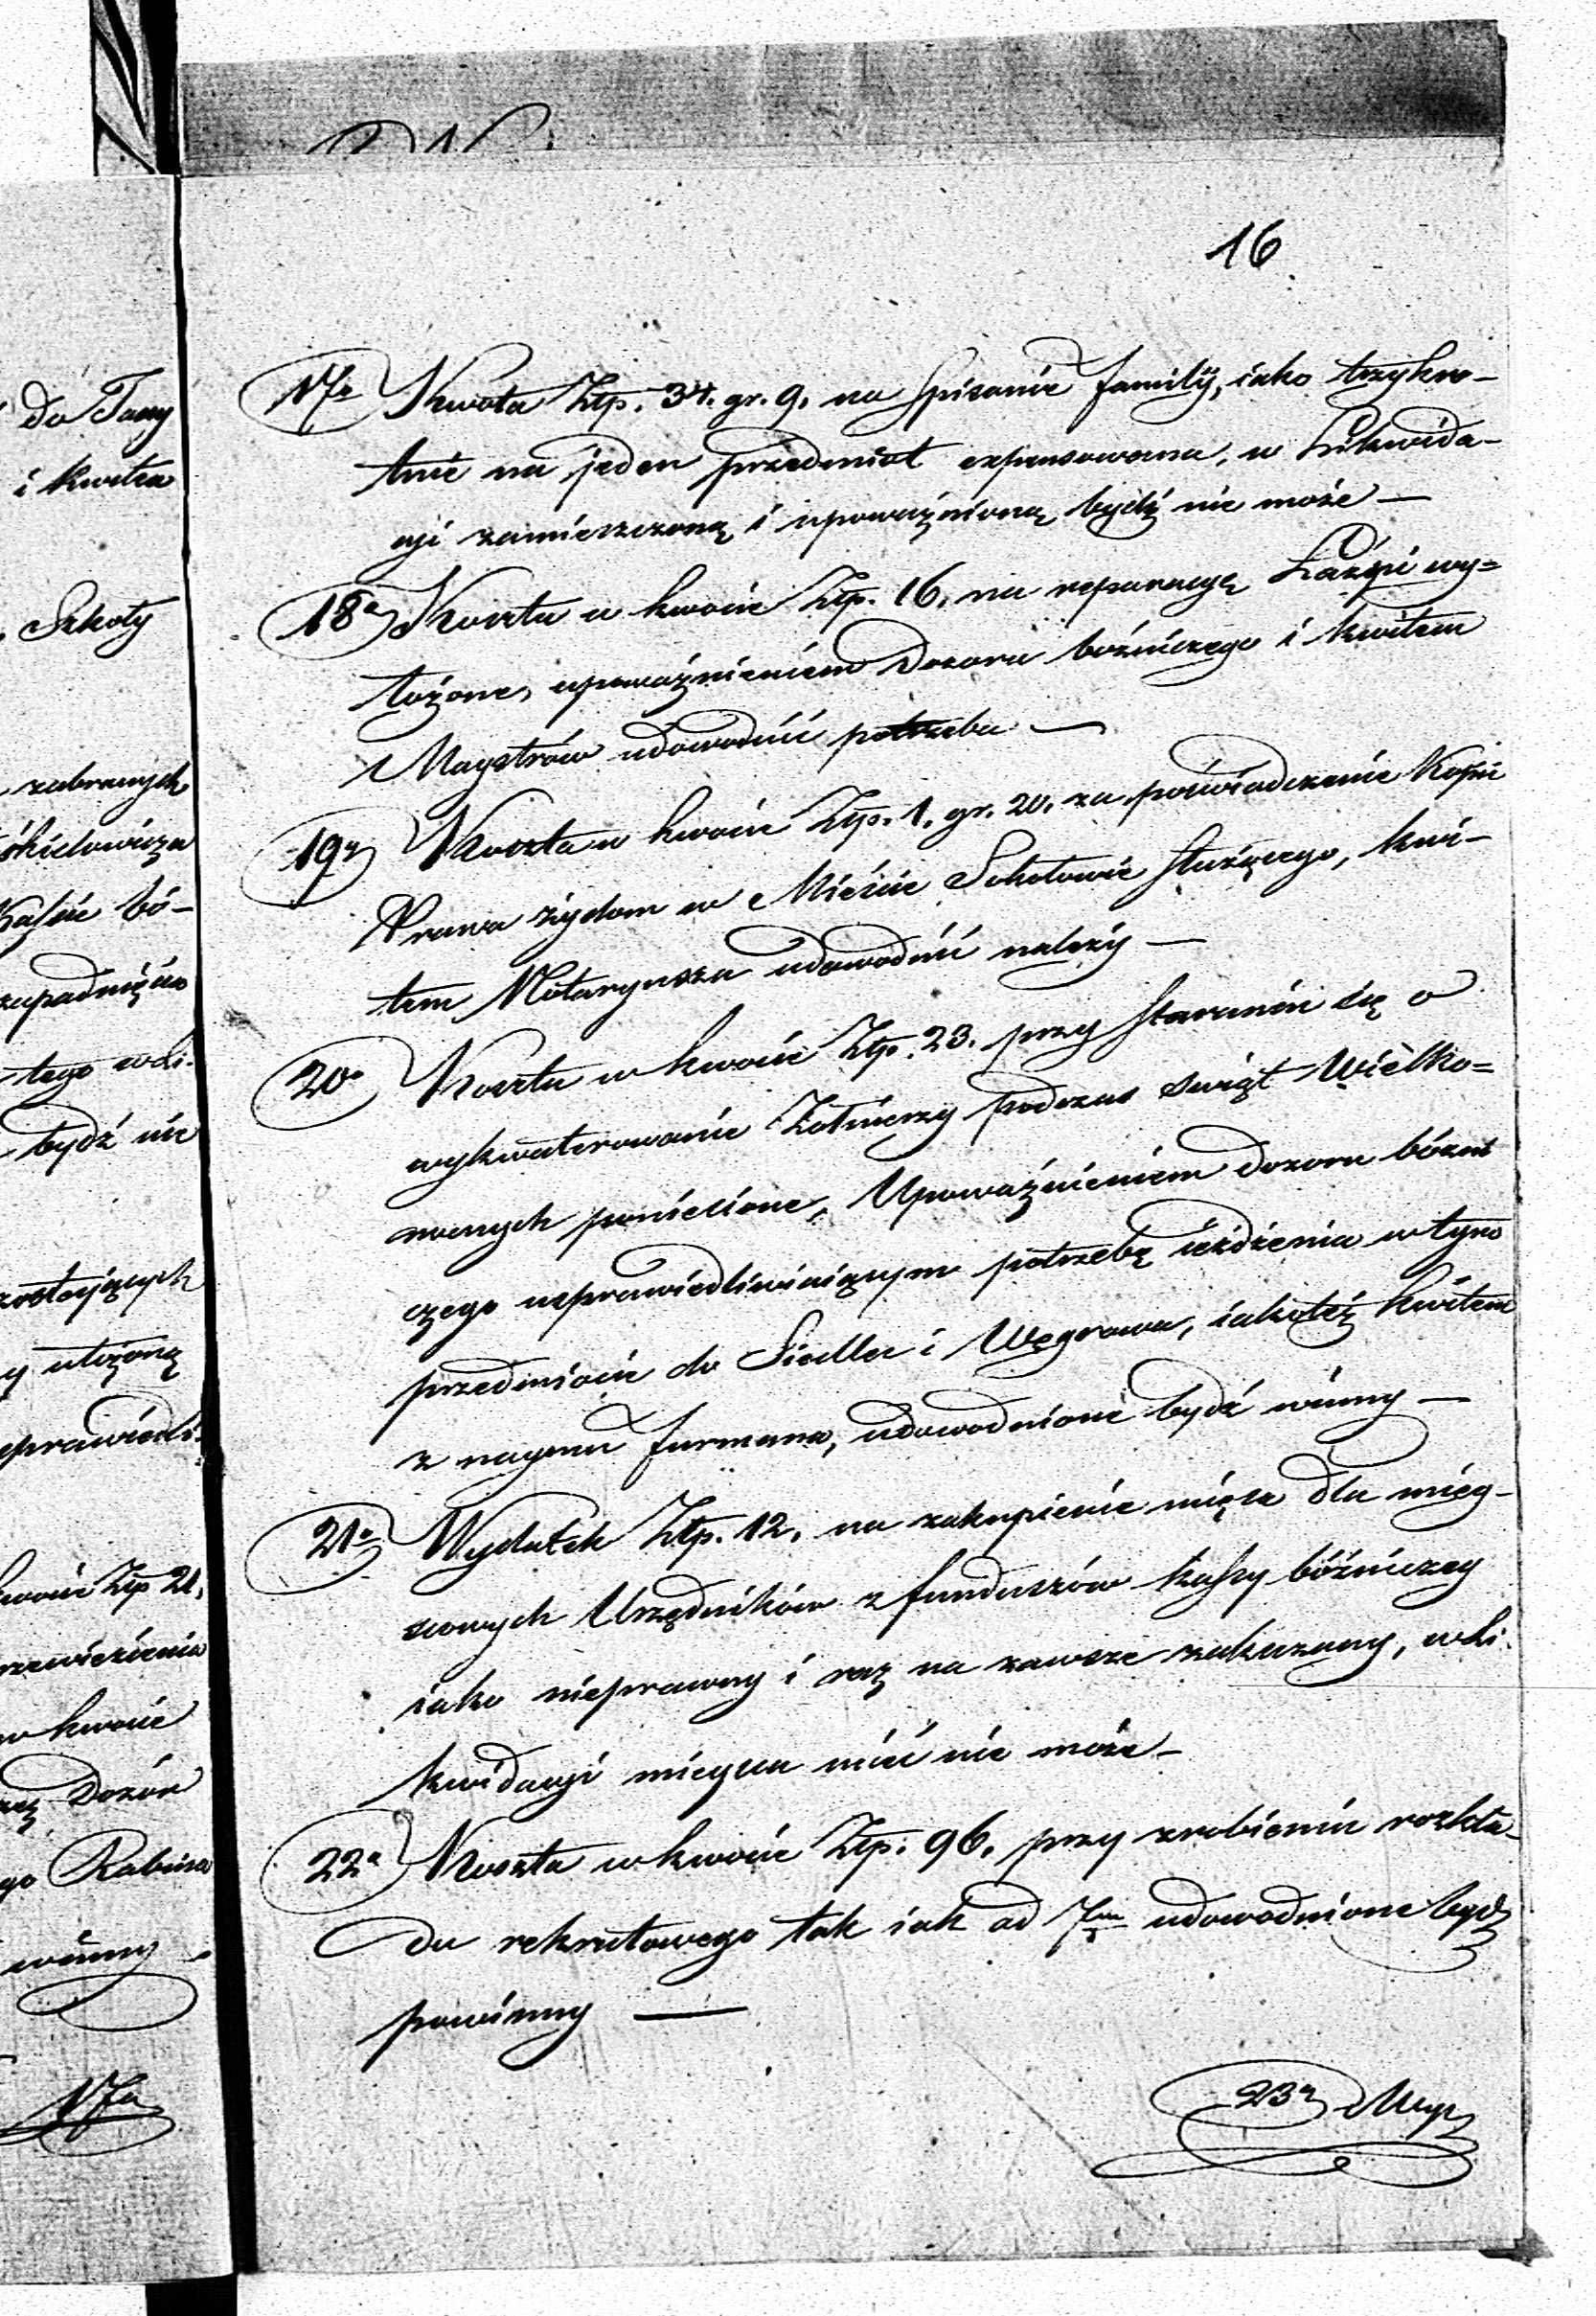 16
17a Kwota Złp. 34. gr. 9. na spisanie familij, iako trzykro-
tnie na jeden przedmiot expensowana, w Likwida-
cyi zamieszczoną i upoważnioną bydź nie może —
18a Koszta w kwocie Złp. 16. na reparacyą Łaźni wy=
łożone, upoważnieniem Dozoru bóźniczego i kwitem
Maystrów udowodnić potrzeba —
19a Koszta w kwocie Złp. 1. gr. 20. za poświadczenie Kopii
Prawa żydom w Mieście Sokołowie służącego, kwi-
tem Notaryusza udowodnić należy —
20a Koszta w kwocie Złp. 23. przy staraniu się o
wykwaterowanie Żołnierzy podczas świąt Wielko=
nocnych poniesione, Upoważnieniem Dozoru bóźni
czego usprawiedliwiaiącym potrzebę ieżdżenia w tym
przedmiocie do Siedlec i Węgrowa, iakoteż kwitem
z naymu furmana, udowodnione bydź winny —
21a Wydatek Złp. 12. na zakupienie mięsa dla miey-
scowych Urzędników z funduszów kassy bóźniczey
iako nieprawny i raz na zawsze zakazany, w Li-
kwidacyi mieysca mieć nie może —
22a Koszta w kwocie Złp. 96. przy zrobieniu rozkła-
du rekrutowego tak iak ad 7mu udowodnione bydź
powinny —
23a
do Taxy
i kwita
Szkoły
zabranych
Kassie bó-
tego w Li-
bydź nie
kwocie Złp 21,
w kwocie
Dozór
go Rabina
winny
17a